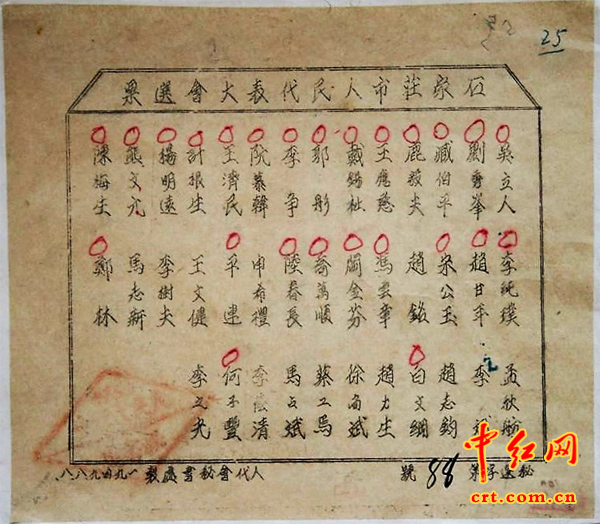 25
石家莊市人民代表大會選票
吳立人
劉秀峯
臧伯平
鹿毅夫
王應慈
戴錫祉
耶彤
李爭
阮慕韓
王濟民
計根生
楊明遠
陳梅生
李純璞
趙甘平
宋公玉
趙銘
馬雲章
岡金芬
喬萬順
陸春長
申希禮
平連
王文健
李樹夫
馬志新
鄭林
孟秋舫
李
趙志鈞
白文綱
趙力生
徐尚斌
蔡工馬
馬占斌
李蔭清
何子豐
李之光
秘選字第88號
人代會秘書處製一九四九八八
中红网
crt.com.cn